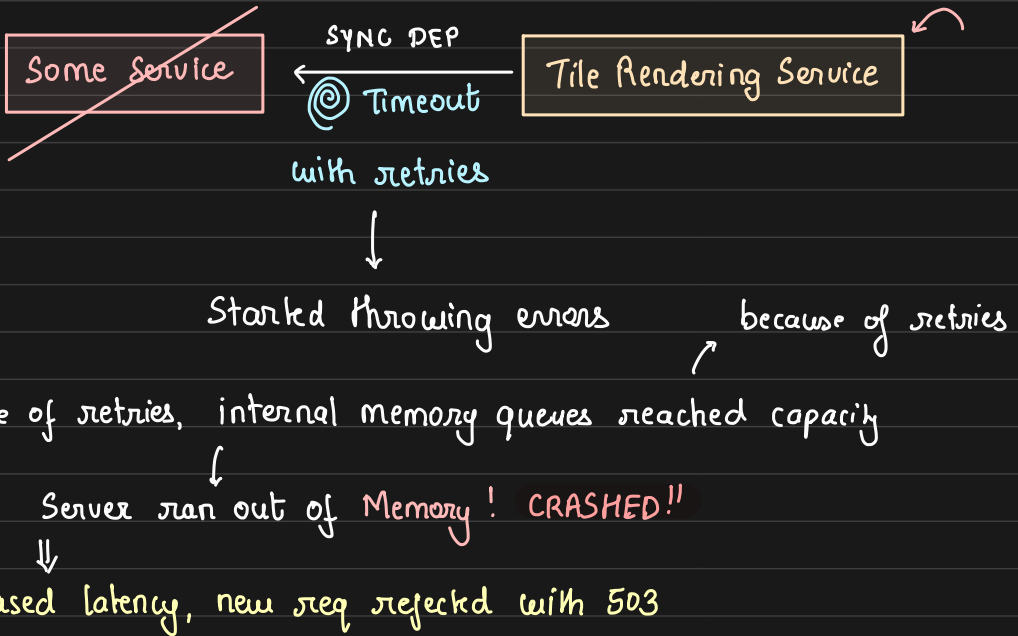 SYNC DEP
Some Service
Tile Rendering Service
Timeout
with retries
Started throwing errors
because of retries
e of retries, internal memory queues reached capacity
Server ran out of Memory! CRASHED!!
ased latency, new req rejected with 503